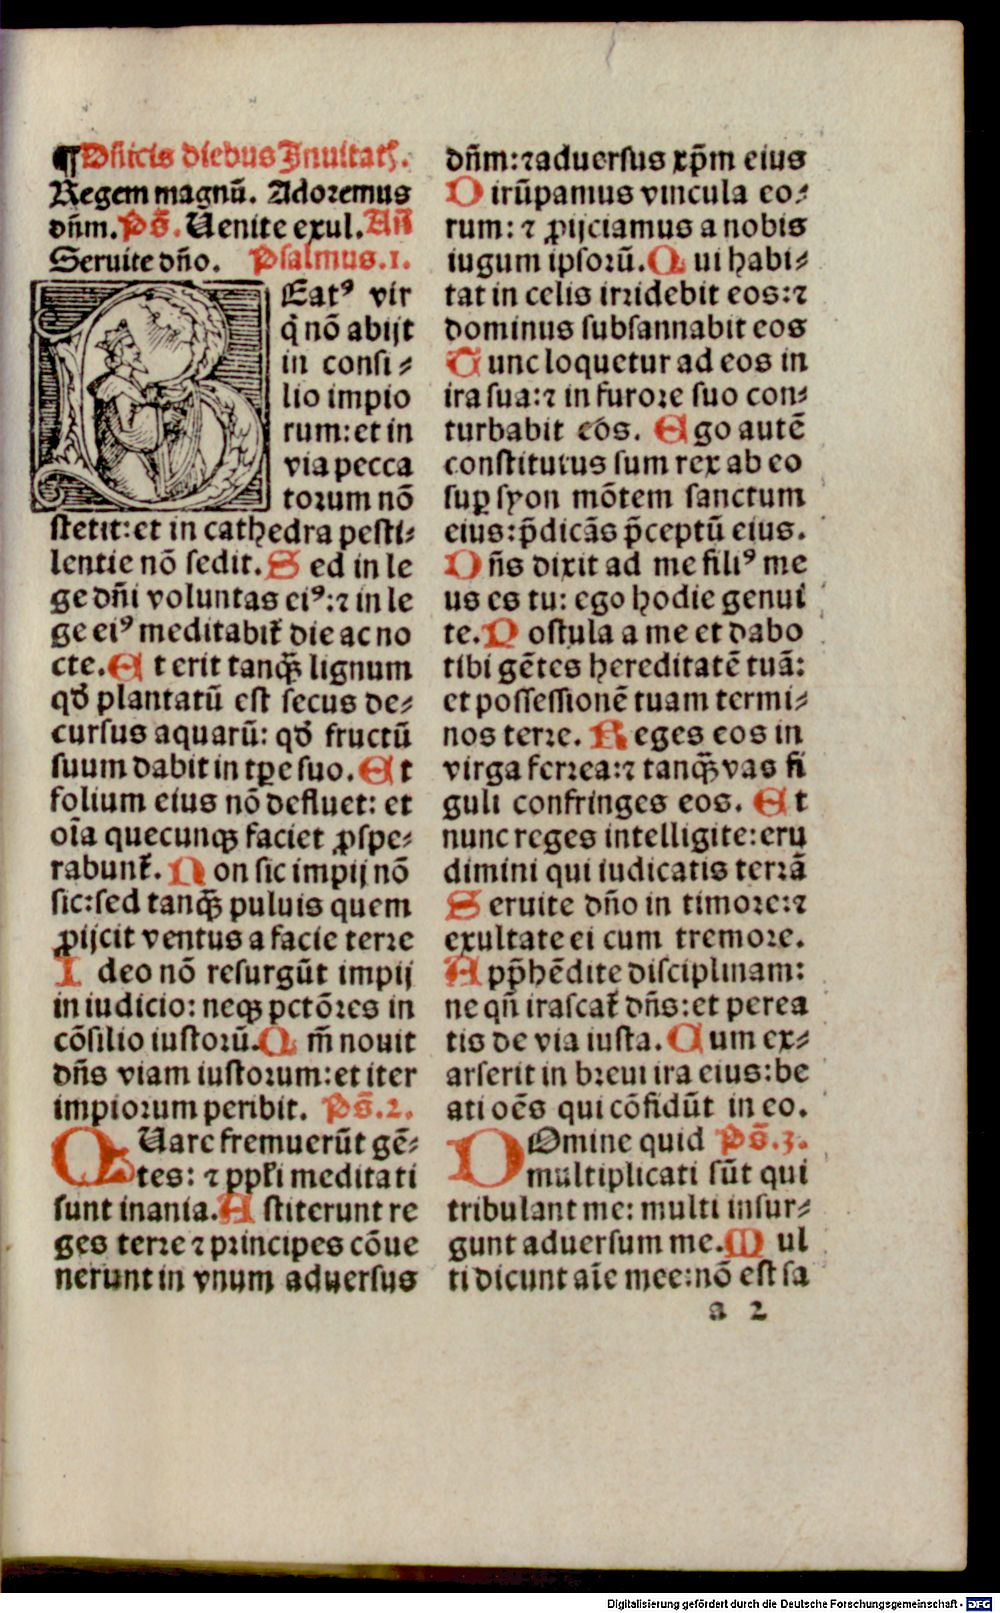 ¶Dñicis diebus Inuitatꝭ.
Regem magnū. Adoremus
dñm. Ps̄. Uenite exul. Añ
Seruite dño. Psalmus.1.
BEatꝰ vir
q̇ nō abijt
in consi⸗
lio impio
rum: et in
via pecca
torum nō
stetit: et in cathedra pesti⸗
lentie nō sedit. S ed in le
ge dñi voluntas eiꝰ: ⁊ in le
ge eiꝰ meditabit̃ die ac no
cte. E t erit tanq̃ꝫ lignum
qđ plantatū est secus de⸗
cursus aquarū: qđ fructū
suum dabit in tꝑe suo. E t
folium eius nō defluet: et
oīa quecunqꝫ faciet ꝓspe⸗
rabunt̃. N on sic impij nō
sic: sed tanq̃ꝫ puluis quem
ꝓijcit ventus a facie terre
I deo nō resurgūt impij
in iudicio: neqꝫ pctōres in
cōsilio iustorū. Q m̄ nouit
dñs viam iustorum: et iter
impiorum peribit. Ps̄.2.
QUare fremuerūt gē⸗
tes: ⁊ ppłi meditati
sunt inania. A stiterunt re
ges terre ⁊ principes cōue
nerunt in vnum aduersus
dñm: ⁊ aduersus xp̄m eius
D irūpamus vincula eo⸗
rum: ⁊ ꝓijciamus a nobis
iugum ipsorū. Q ui habi⸗
tat in celis irridebit eos: ⁊
dominus subsannabit eos
T unc loquetur ad eos in
ira sua: ⁊ in furore suo con⸗
turbabit eos. E go autē
constitutus sum rex ab eo
suꝑ syon mōtem sanctum
eius: p̄dicās p̄ceptū eius.
D ñs dixit ad me filiꝰ me
us es tu: ego hodie genui
te. P ostula a me et dabo
tibi gētes hereditatē tuā:
et possessionē tuam termi⸗
nos terre. R eges eos in
virga ferrea: ⁊ tanq̃ꝫ vas fi
guli confringes eos. E t
nunc reges intelligite: eru
dimini qui iudicatis terrā
S eruite dño in timore: ⁊
exultate ei cum tremore.
A pp̄hēdite disciplinam:
ne qñ irascat̃ dñs: et perea
tis de via iusta. C um ex⸗
arserit in breui ira eius: be
ati oēs qui cōfidūt in eo.
DOmine quid Ps̄.3.
multiplicati sūt qui
tribulant me: multi insur⸗
gunt aduersum me. M ul
ti dicunt aīe mee: nō est sa
a 2
Digitalisierung gefördert durch die Deutsche Forschungsgemeinschaft - DFG